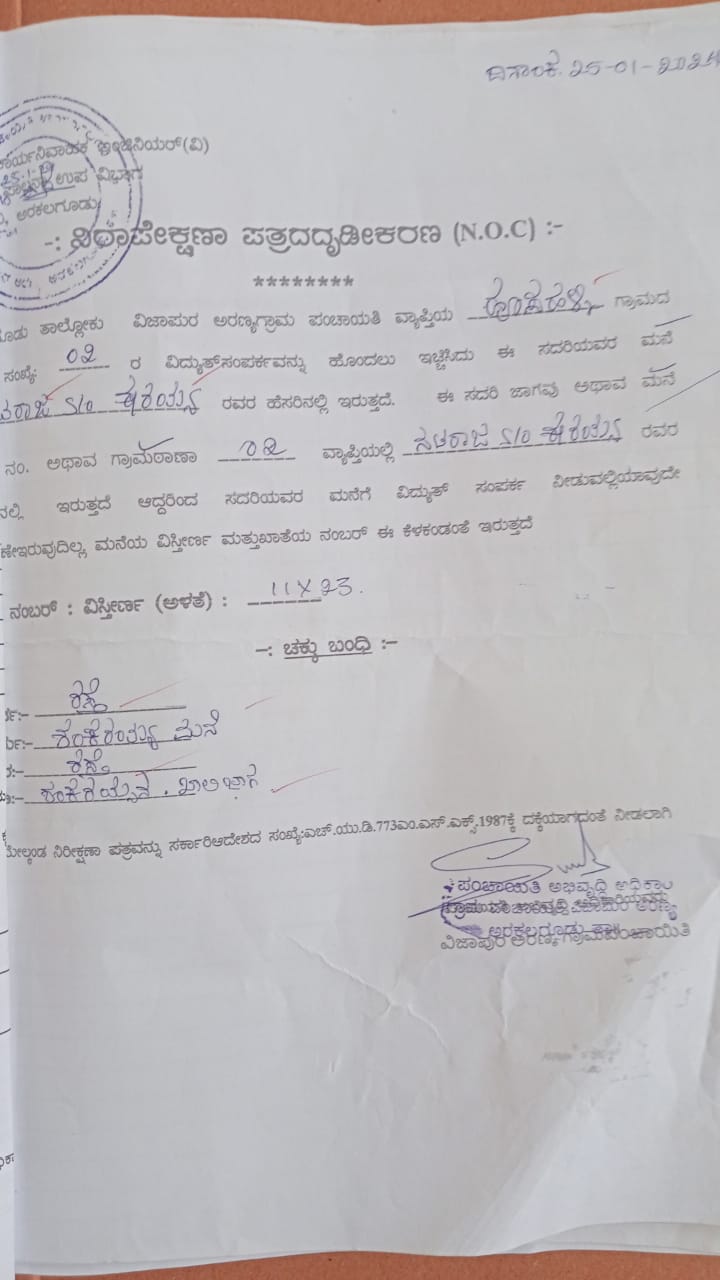 ದಿನಾಂಕ. 25-01-2024
ಕಾರ್ಯನಿರ್ವಾಹಕ ಇಂಜಿನಿಯರ್(ವಿ)
ಉಪ ವಿಭಾಗ
ಅರಕಲಗೂಡು
-: ನಿರಾಪೇಕ್ಷಣಾ ಪತ್ರದದೃಢೀಕರಣ (N.O.C) :-
********
ಗೂಡು ತಾಲ್ಲೋಕು ವಿಜಾಪುರ ಅರಣ್ಯಗ್ರಾಮ ಪಂಚಾಯತಿ ವ್ಯಾಪ್ತಿಯ ಗ್ರಾಮದ
ಸಂಖ್ಯೆ: 02 ರ ವಿದ್ಯುತ್‌ಸಂಪರ್ಕವನ್ನು ಹೊಂದಲು ಇಚ್ಚಿಸಿದು ಈ ಸದರಿಯವರ ಮನೆ
S/o ರವರ ಹೆಸರಿನಲ್ಲಿ ಇರುತ್ತದೆ. ಈ ಸದರಿ ಜಾಗವು ಅಥಾವ ಮನೆ
ನಂ. ಅಥಾವ ಗ್ರಾಮಠಾಣಾ 02 ವ್ಯಾಪ್ತಿಯಲ್ಲಿ S/o ರವರ
ನಲ್ಲಿ ಇರುತ್ತದೆ ಆದ್ದರಿಂದ ಸದರಿಯವರ ಮನೆಗೆ ವಿದ್ಯುತ್ ಸಂಪರ್ಕ ನೀಡುವಲ್ಲಿಯಾವುದೇ
ಣೇಇರುವುದಿಲ್ಲ, ಮನೆಯ ವಿಸ್ತೀರ್ಣ ಮತ್ತುಖಾತೆಯ ನಂಬರ್ ಈ ಕೆಳಕಂಡಂತೆ ಇರುತ್ತದೆ
ನಂಬರ್ : ವಿಸ್ತೀರ್ಣ (ಅಳತೆ) : 11 X 23.
-: ಚಕ್ಕು ಬಂಧಿ :-
ರ್ವ:- ರಸ್ತೆ
ರ್ಮ:- ಮನೆ
ರ:- ರಸ್ತೆ
ಖಾಲಿ ಜಾಗ
ಮೇಲ್ಕಂಡ ನಿರೀಕ್ಷಣಾ ಪತ್ರವನ್ನು ಸರ್ಕಾರಿಆದೇಶದ ಸಂಖ್ಯೆ:ಎಚ್.ಯು.ಡಿ.773ಎಂ.ಎಸ್.ಎಕ್ಸ್.1987ಕ್ಕೆ ದಕ್ಕೆಯಾಗದಂತೆ ನೀಡಲಾಗಿ
ಪಂಚಾಯಿತಿ ಅಭಿವೃದ್ಧಿ ಅಧಿಕಾರಿ
ಅರಕಲಗೂಡು
ವಿಜಾಪುರ ಅರಣ್ಯಗ್ರಾಮಪಂಚಾಯಿತಿ